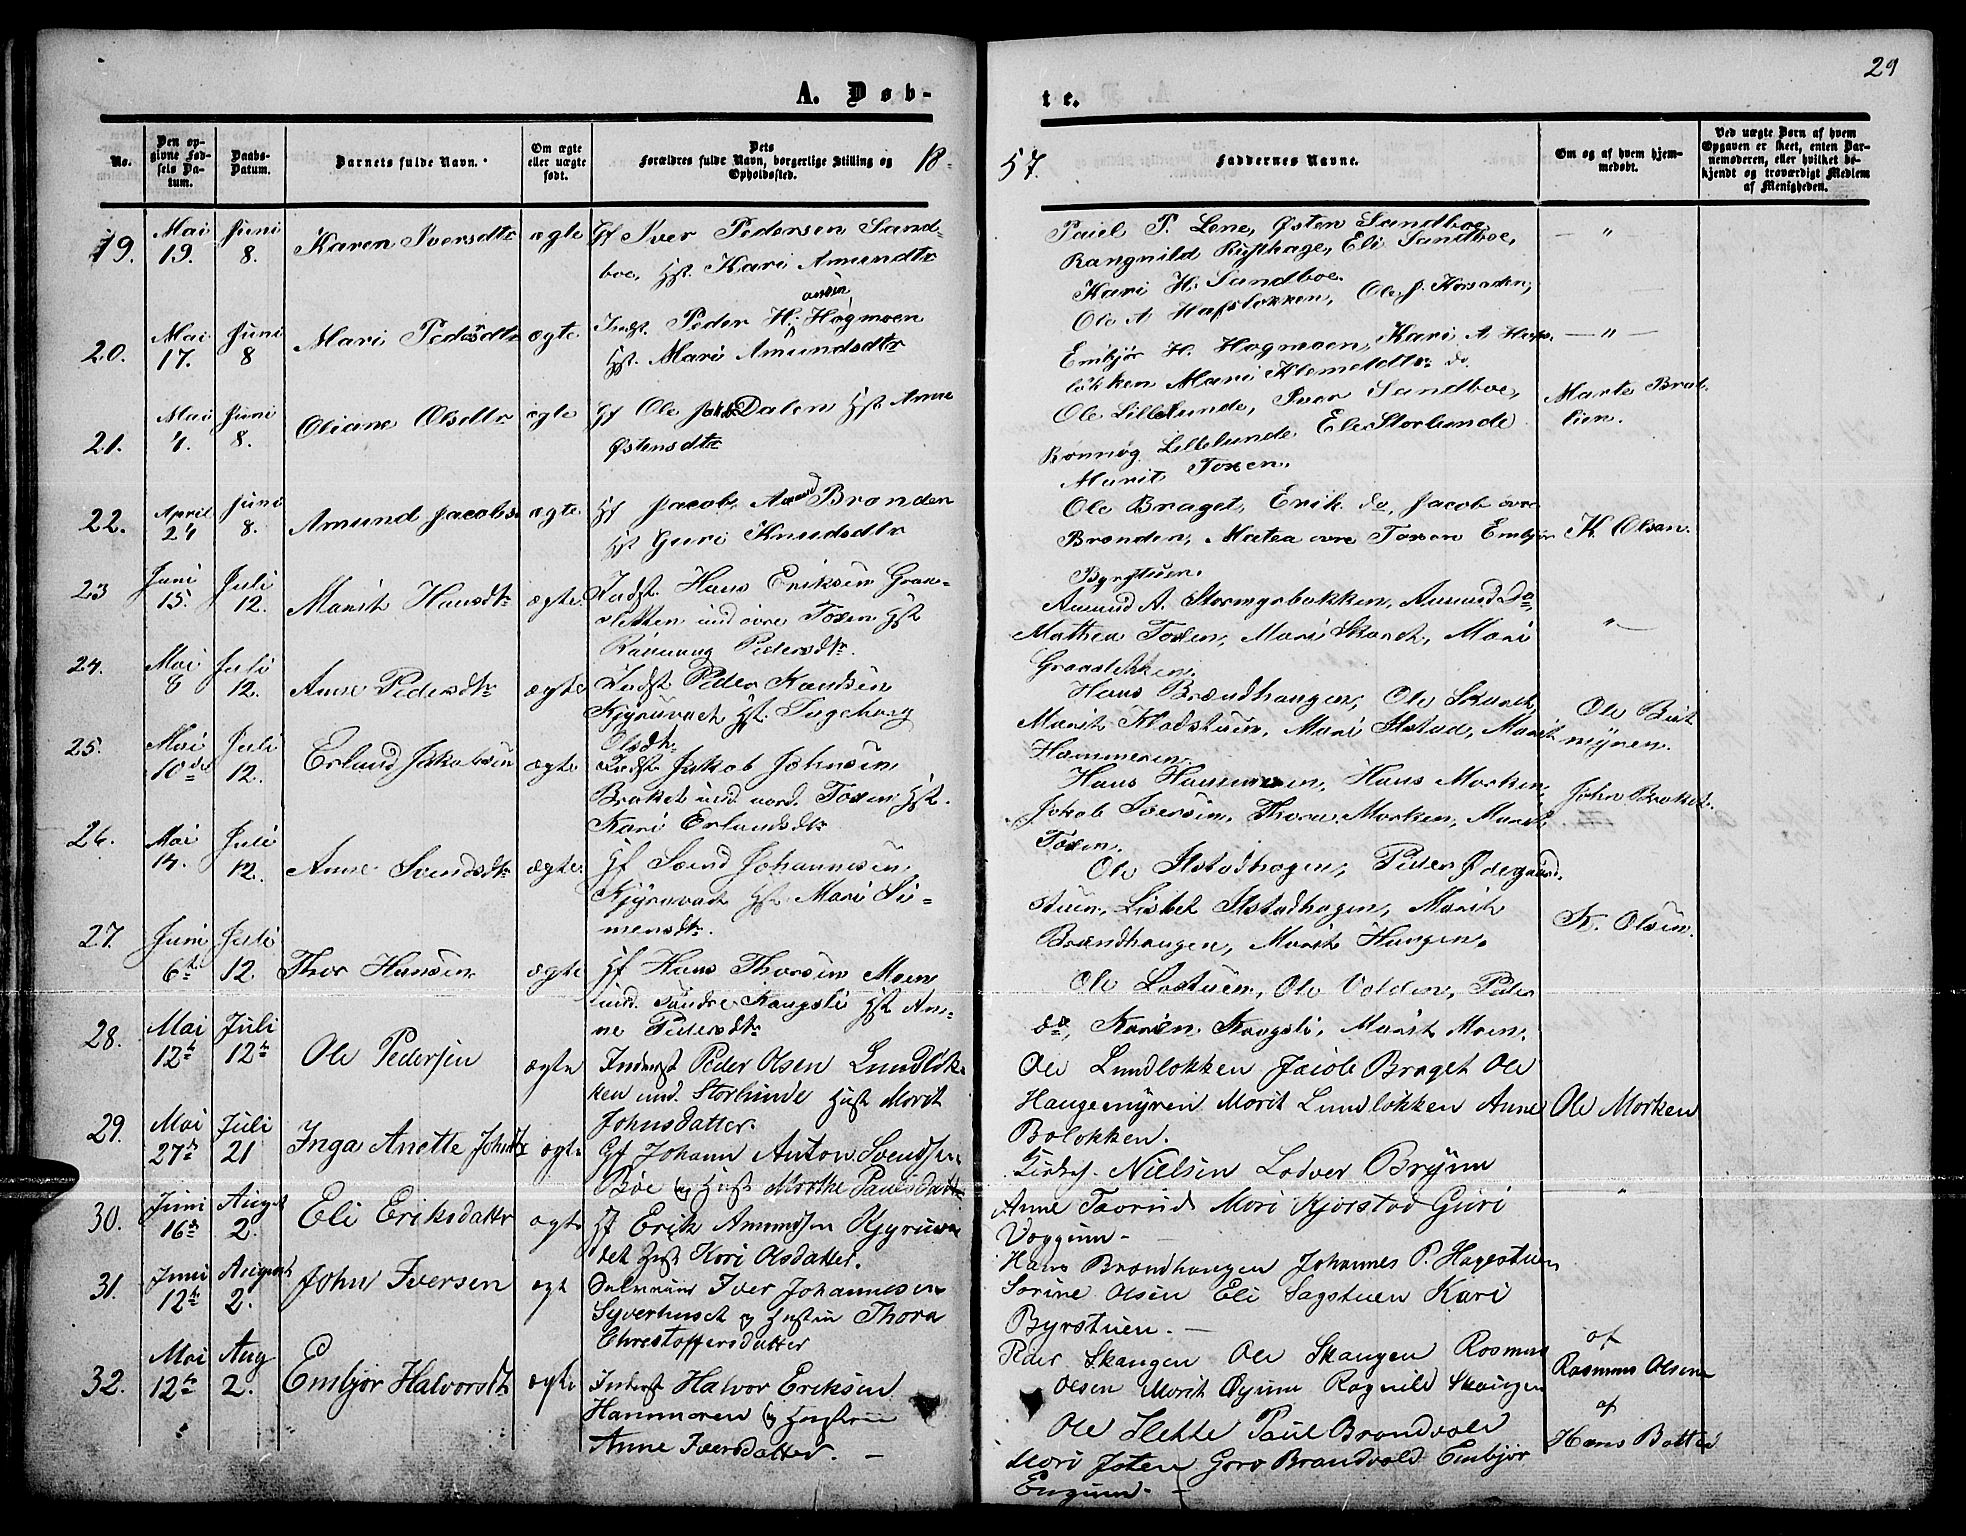 29
A. Døb-
te.
No.
Den op-
givne Fød-
sels Da-
tum.
Daabs-
Datum.
Barnets fulde Navn.
Om ægte
eller uægte
født.
Dets
Forældres fulde Navn, borgerlige Stilling og
Opholdssted.
18-
57.
Faddernes Navne.
Om og af hvem hjem-
medøbt.
Ved uægte Børn af hvem
Opgaven er skeet, enten Bar-
nemoderen, eller hvilket be-
kjendt og troværdigt Medlem
af Menigheden.
19.
Mai
19.
Juni
8.
Karen Iversdtr
ægte
Gf Iver Pedersen Sand-
boe, Hst. Kari Amundtr
Paul P. Lene, Østen Sandboe,
Rangnild Eli Sandboe,
Kari H. Sandboe.
— " —
20.
Mai
17.
Juni
8
Mari Pedrsdtr
ægte
Indst. Peder H: Høgmoen
ansen
Hst. Mari Amundsdtr
Ole A. Hafsløkken, Ole J.
Embjør H. Høgmoen, Kari A Hafs-
løkken Mari Klemetdtr. do
— " —
21.
Mai
4.
Juni
8.
Oliane Olsdtr
ægte
Gf Ole Dalen Hst Anne
Østensdtr
Ole Lillelunde, Iver Sandboe,
Rønnøg Lillelunde. Eli Storlunde
Marit Toxen.
Marte Brat-
lien.
22.
April
24
Juni
8.
Amund Jacobs.
ægte.
Hf Jacob Amund Brænden
Hst Guri Knudsdtr
Ole Braget, Erik do, Jacob øvre
Brænden, Matea øvre Toxen Embjør
Byrgtuen.
K. Olsen.
23
Juni
15.
Juli
12.
Marit Hansdtr
ægte.
Indst. Hans Eriksen Graa-
sletten und øvre Toxen Hst
Rønnaug Pedersdtr.
Amund A. Stormyrbakken, Amund Do,
Mathea Toxen, Mari Skardt, Mari
Graasletten.
" —
24.
Mai
8
Juli
12.
Anne Pedersdtr
ægte
Indst Peder Knudsen
Kjyruvad Hst. Ingeborg
Olsdtr.
Hans Brændhaugen, Ole Skardt,
Marit Kladstuen, Mari Ilstad, Marit
Hammeren.
Ole Bist
myren.
25.
Mai
10de
Juli
12.
Erland Jakobsen
ægte
Indst. Jakob Johnsen
Braket und nord. Toxen Hst.
Kari Erlandsdtr.
Hans Hammeren, Hans Morken,
Jakob Iversen, Thora Morken, Marit
Toxen.
John Braket.
26.
Mai
14.
Juli
12.
Anne Svendsdtr
ægte.
Gf Svend Johannesen
Kjyruvad Hst Mari Si-
mensdtr.
Ole Ilstadhagen, Peder Ødegaard-
stuen, Lisbet Ilstadhagen, Marit
Brændhaugen, Marit Haugen.
K. Olsen.
27.
Juni
6te
Juli
12.
Thor Hansen
ægte
Hf Hans Thorsen Moen
und. Søndre Kongsli Hst An-
ne Pedersdtr.
Ole Lostuen, Ole Volden, Peder
do, Karen Kongsli, Marit Moen.
28.
Mai
12te
Juli
12te
Ole Pedersen
ægte
Inderst Peder Olsen Lundløk-
ken und. Storlunde Hust Marit
Johnsdatter.
Ole Lundløkken Jacob Braget Ole
Haugemyren Marit Lundløkken Anne
Boløkken.
Ole Morken
29.
Mai
27de
Juli
21
Inga Anette Johndtr
ægte
Gf Johann Anton Svendsen
Bøe og Hust Marthe Paulsdatter
Kirkes. Nielsen Lodver Brynn
Anne Taarud Mari Kjørstad Guri
Vaggum -
"
30.
Juni
16de
August
2.
Eli Eriksdatter
ægte
Hf Erik Amundsen Kjyruva-
det Hust Kari Olsdatter.
Hans Brændhaugen Johannes P. Hagestuen
Sorine Olsen Eli Sagstuen Kari
Byrstuen. —
31.
Juni
12te
August
2.
John Iversen
ægt
Iver Johannesen
Syverhuset og Hustru Thora
Christoffersdatter
Peder Skaugen Ole Skaugen Rasmus
Olsen Marit Øyum Ragnild Skaugen
af
Rasmus Olsen
32.
Mai
12te
Aug
2.
Embjør Halvorsdtr
ægte
Inderst Halvor Eriksen
Hammeren og Hustru
Anne Iversdatter. —
Ole Slette Paul Brandvold
Mari Joten Goro Brandvold Embjør
Engum. —
af
Hans Botten